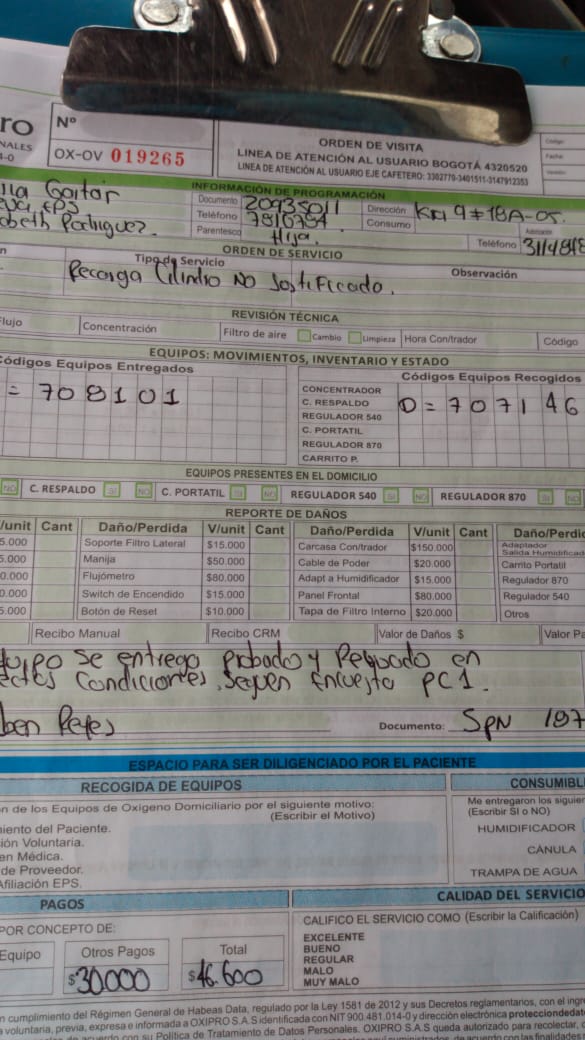 ro Nº
NALES
OX-OV 019265
ORDEN DE VISITA
LINEA DE ATENCIÓN AL USUARIO BOGOTÁ 4320520
LINEA DE ATENCIÓN AL USUARIO EJE CAFETERO: 3302770-3401511-3147912353
INFORMACIÓN DE PROGRAMACIÓN
Documento 20935011 Dirección Kra 9 #18A-05.
EPS Teléfono Consumo
Parentesco Hija. Teléfono
ORDEN DE SERVICIO
Tipo de Servicio Observación
Recarga Cilindro No Justificado.
REVISIÓN TÉCNICA
Flujo Concentración Filtro de aire Cambio Limpieza Hora Con/trador Código
EQUIPOS: MOVIMIENTOS, INVENTARIO Y ESTADO
Códigos Equipos Entregados Códigos Equipos Recogidos
= 708101
CONCENTRADOR
C. RESPALDO 0 = 707146
REGULADOR 540
C. PORTATIL
REGULADOR 870
CARRITO P.
EQUIPOS PRESENTES EN EL DOMICILIO
NO C. RESPALDO SI NO C. PORTATIL SI NO REGULADOR 540 SI NO REGULADOR 870 SI NO
REPORTE DE DAÑOS
/unit Cant Daño/Perdida V/unit Cant Daño/Perdida V/unit Cant Daño/Perdi
5.000 Soporte Filtro Lateral $15.000 Carcasa Con/trador $150.000 Adaptador Salida Humidificad
5.000 Manija $50.000 Cable de Poder $20.000 Carrito Portatil
0.000 Flujómetro $80.000 Adapt a Humidificador $15.000 Regulador 870
0.000 Switch de Encendido $15.000 Panel Frontal $80.000 Regulador 540
5.000 Botón de Reset $10.000 Tapa de Filtro Interno $20.000 Otros
Recibo Manual Recibo CRM Valor de Daños $ Valor Pa
se entrega probado y en
condiciones, PC1.
Reyes Documento: 197
ESPACIO PARA SER DILIGENCIADO POR EL PACIENTE
RECOGIDA DE EQUIPOS CONSUMIBL
n de los Equipos de Oxigeno Domiciliario por el siguiente motivo: Me entregaron los siguien
(Escribir el Motivo) (Escribir SI o NO)
iento del Paciente. HUMIDIFICADOR
ión Voluntaria. CÁNULA
en Médica.
de Proveedor. TRAMPA DE AGUA
Afiliación EPS.
PAGOS CALIDAD DEL SERVICIO
POR CONCEPTO DE: CALIFICO EL SERVICIO COMO (Escribir la Calificación)
Equipo Otros Pagos Total
EXCELENTE
BUENO
REGULAR
MALO
MUY MALO
$30.000 $46.600
n cumplimiento del Régimen General de Habeas Data, regulado por la Ley 1581 de 2012 y sus Decretos reglamentarios, con el ingre
voluntaria, previa, expresa e informada a OXIPRO S.A.S identificada con NIT 900.481.014-0 y dirección electrónica protecciondedat
de acuerdo con su Política de Tratamiento de Datos Personales. OXIPRO S.A.S queda autorizado para recolectar,